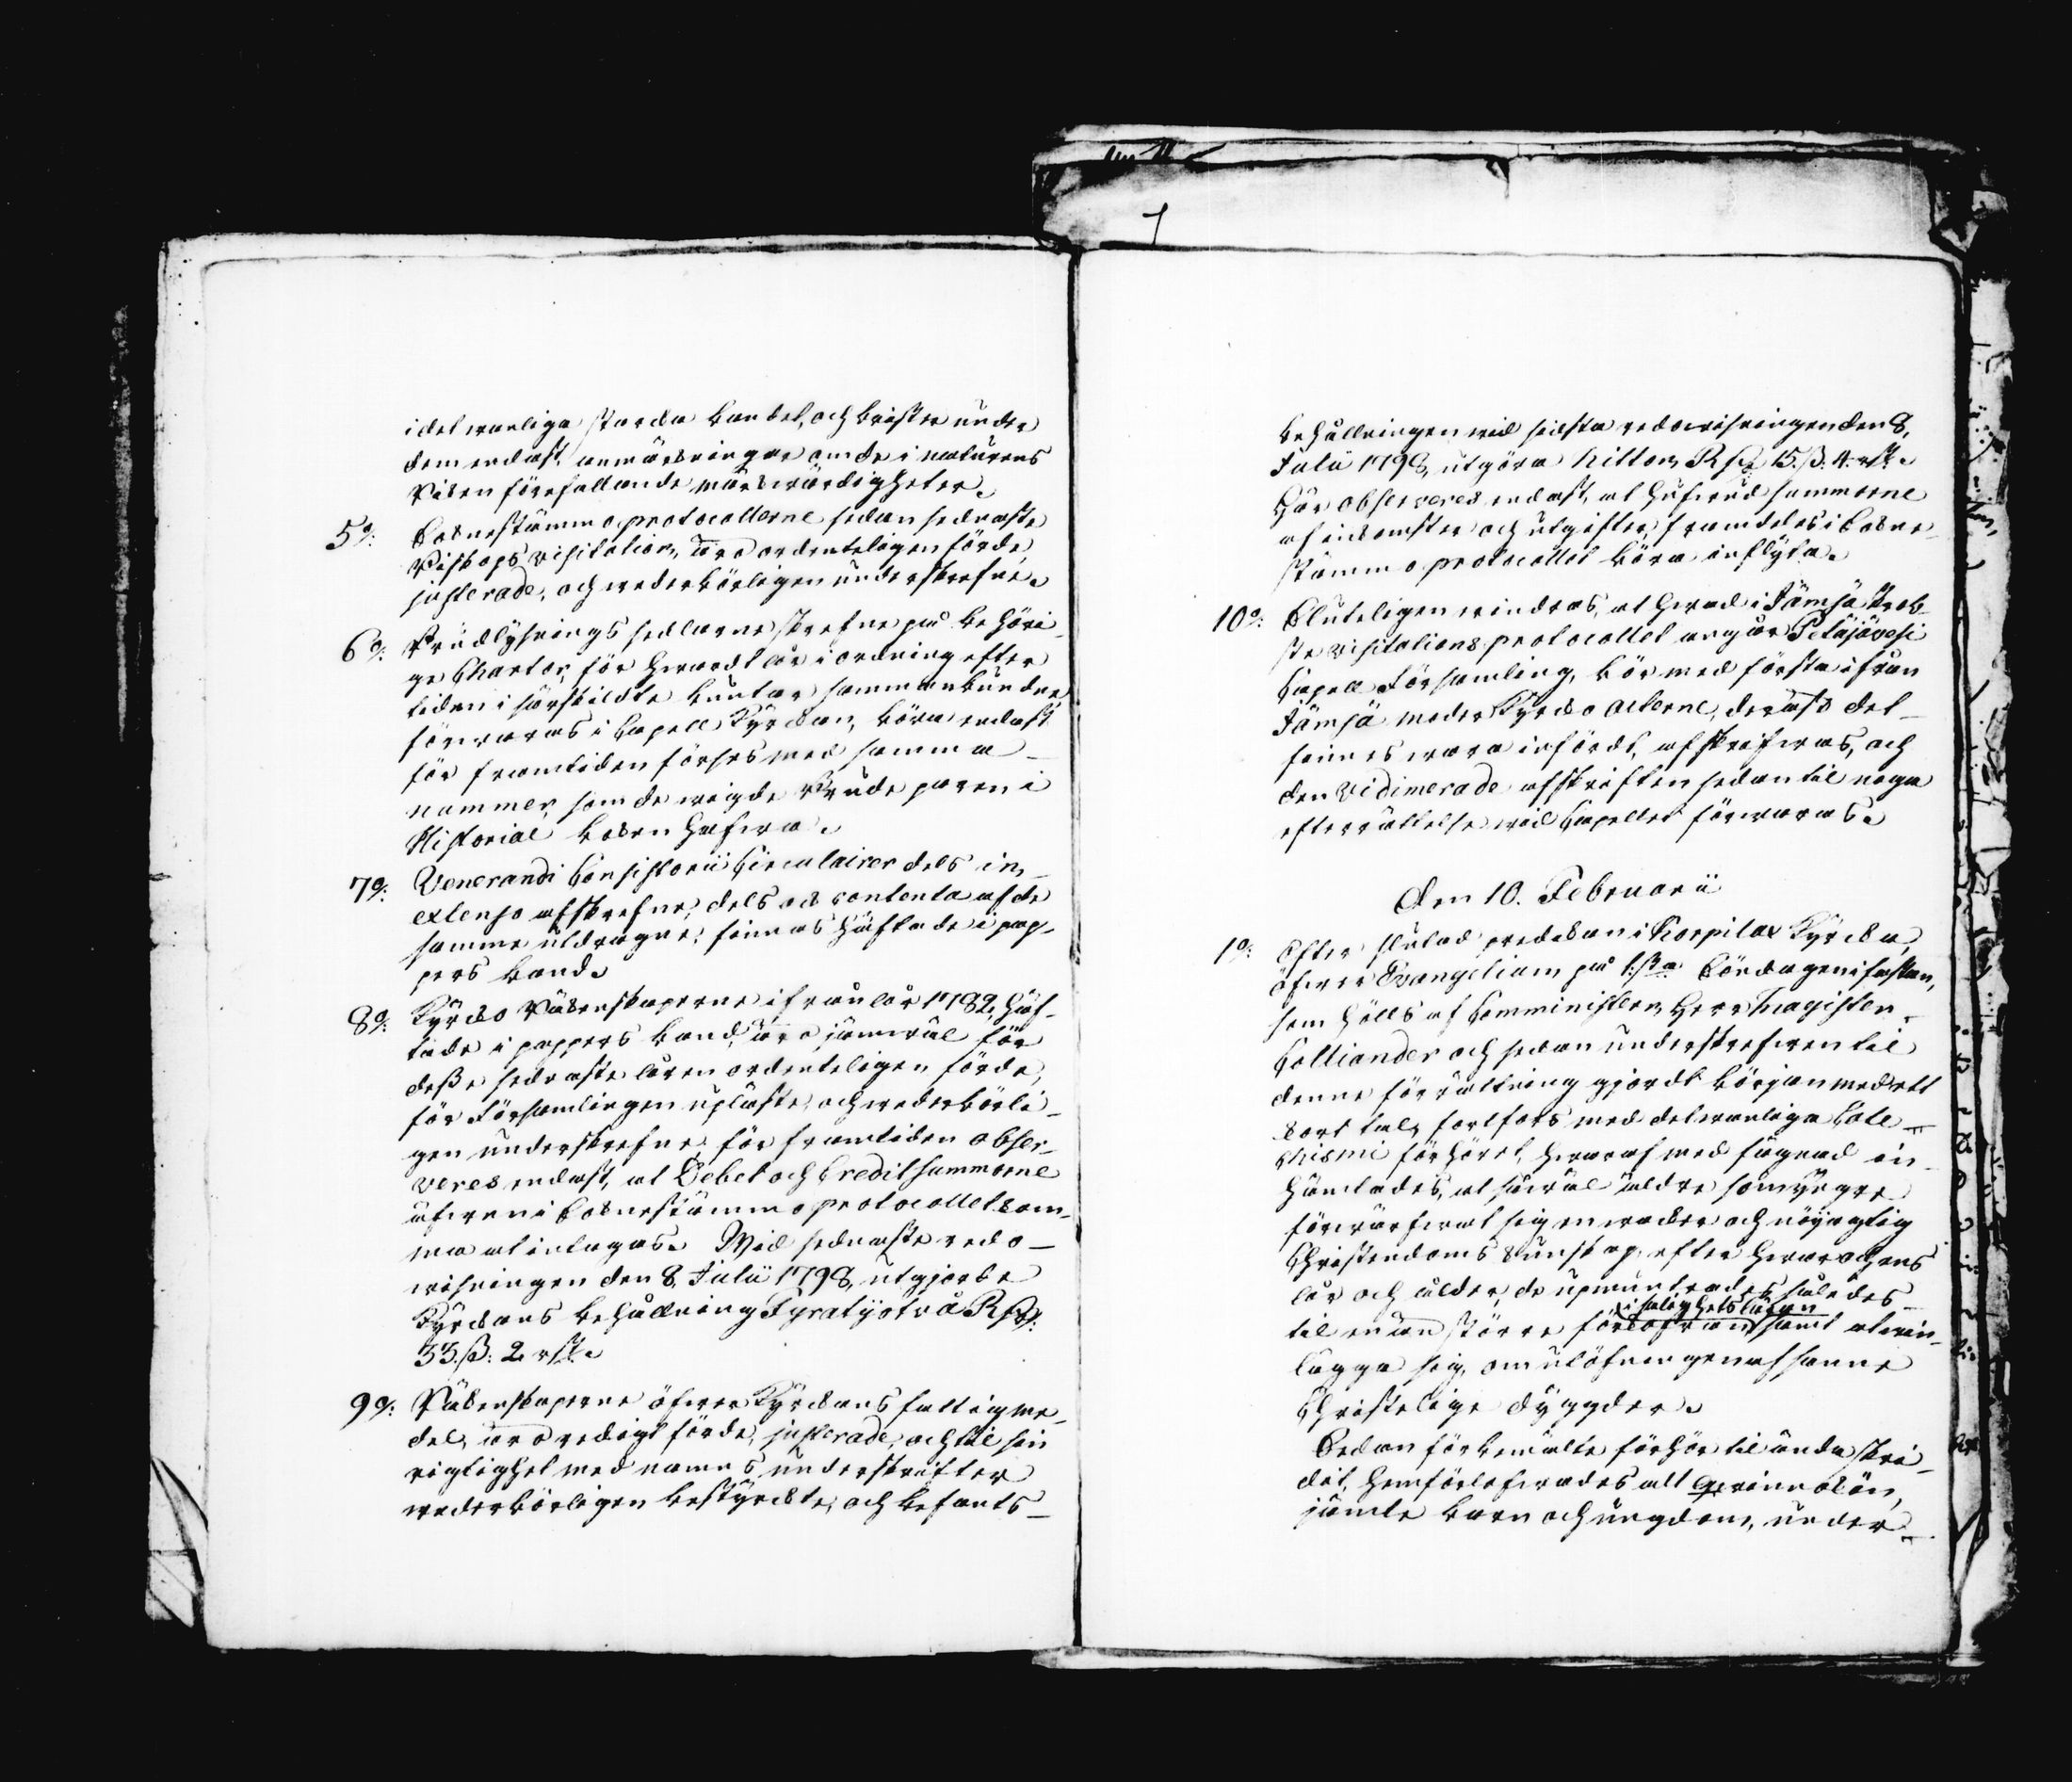 i det wanliga starka bandet, och brister under
dem endast anmärkningar om de i naturens
Riken förefallande märkwärdigheter.
5o: Soknestämmo protocollerne sedan sednaste
Biskops visitation, äro ordenteligen förde,
justerade, och wederbörligen underskrefne.
6o: Trudlysnings sedlarne skrefne på behöri-
ge Chartor, för hwardt år i ordning efter
tiden i särskildte buntar sammanbundne
förwaras i Capell Kyrckan, böra endast
för framtiden förses med samma
nummer, som de wigde Brude paren i
Historiæ boken hafwa.
7o: Venerandi Consistorii Circulairer dels in
extenso afskrefne, dels ock contenta af de
samme utdragne, finnas häftade i pap-
pers band.
8o: Kyrcko Räkenskaperne ifrån år 1782, häf-
tade i pappers band, äro jämwäl för
desse sednaste åren ordenteligen förde,
för Församlingen upläste, och wederbörli-
gen underskrefne, för framtiden obser-
veres endast, at Debet och Credit summorne
äfwen i Sokne stämmo protocollet kom-
ma at intagas. Wid sednaste redo-
wisningen den 8. Julii 1798, utgjorde
Kyrckans behållning Fyratijotvå Rdr:
33. ß: 2 rst.
9o: Räkenskaperne öfwer Kyrckans fattigme-
del, äro redigt förde, justerade, och til sin
rigtighet med namns underskrifter
wederbörligen bestyrckte, och befants
7
behållningen wid sidsta redowisningen den 8.
Julii 1798, utgöra Nitton Rdr 15. ß. 4. rst.
Här observeres endast, at hufwud summorne
af inkomster och utgifter, framdeles i Sokne-
stämmo protocollet böra inflyta.
10o: Sluteligen windras, at hwad i Jämsä Prob-
ste visitations protocollet angår Petäjävesi
Capell Församling, bör med första ifrån
Jämsä moder Kyrcko acterne, derest det
finnes wara infördt, afskrifwas, och
den vidimerade afskriften sedan til noga
efterrättelse wid Capellet förwaras.
Den 10. Februarii
1o: Efter slutad predikan i Korpilax Kyrcka,
öfwer Evangelium på 1:sta Söndagen i fastan,
som hölls af Comministern, Herr Magister
Calliander och sedan underskrefwen til
denne förrättning gjordt början med ett
kort tal, fortfors med det wanliga Cate-
chismi förhöret, hwaraf med fägnad in-
hämtades, at såwäl äldre som yngre
förwärfwat sig en wacker och nöyagtig
Christendoms kunskap, efter hwar och ens
år och ålder, de upmuntrades således
i salighets läran
til en än större förkofran samt at win-
lägga sig, om utöfningen af sanne
Christelige dygder.
Sedan förbemälte förhör til ända skri-
dit, hemförlofwades alt Qwinnokön,
jämte barn och ungdom, under